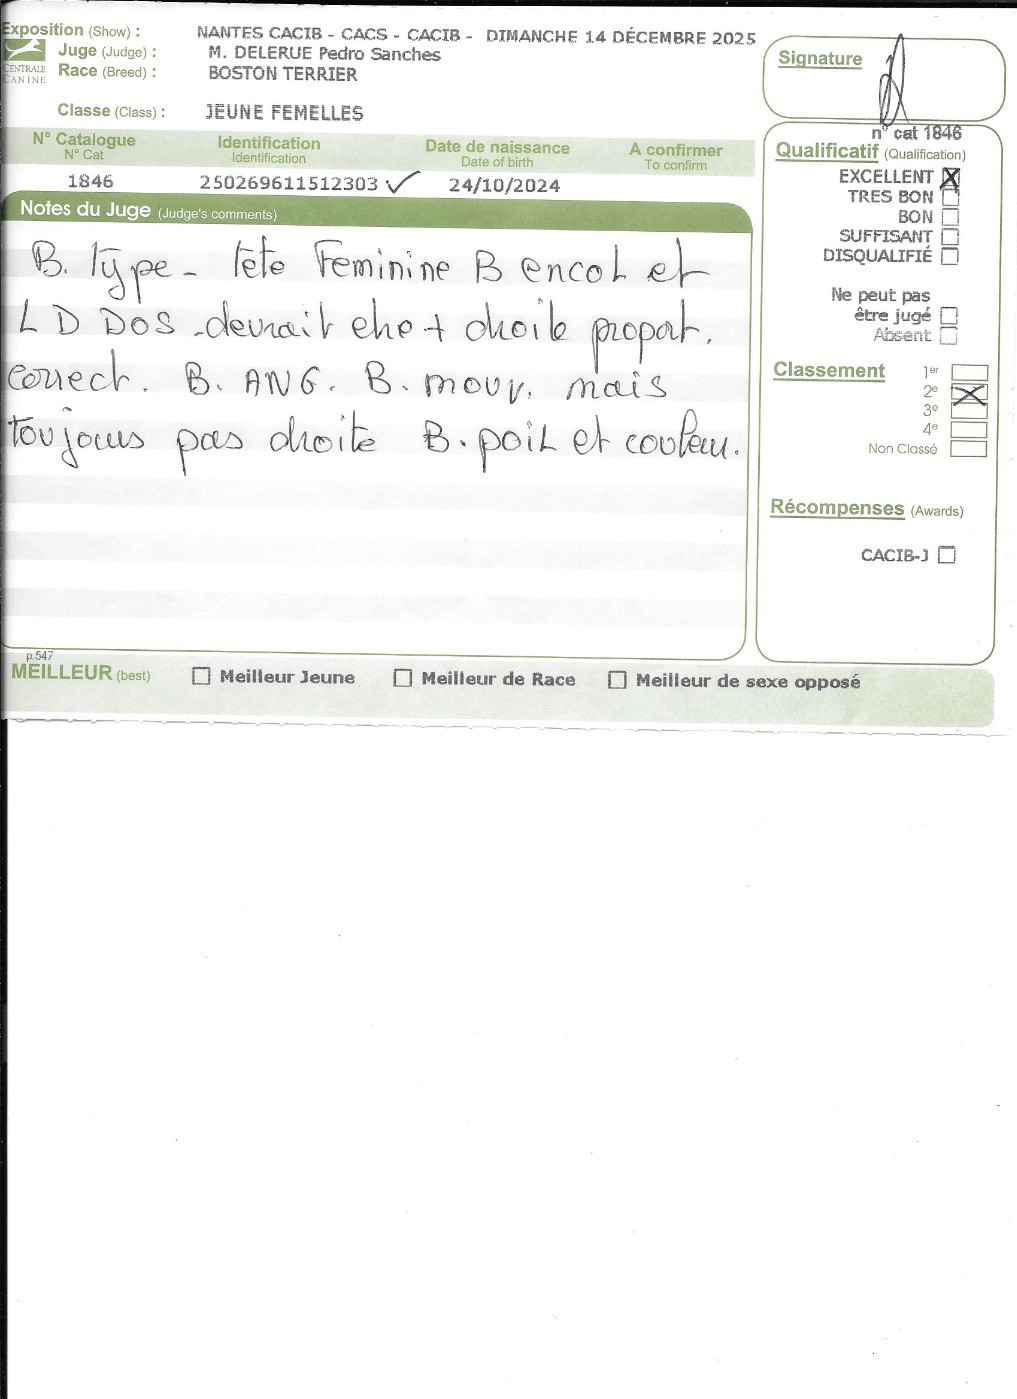 Exposition (Show) : NANTES CACIB - CACS - CACIB - DIMANCHE 14 DÉCEMBRE 2025
Juge (Judge) : M. DELERUE Pedro Sanches
CENTRALE CANINE
Race (Breed) : BOSTON TERRIER
Classe (Class) : JEUNE FEMELLES
Signature
N° Catalogue Identification Date de naissance A confirmer
N° Cat Identification Date of birth To confirm
1846 250269611512303 ✓ 24/10/2024
Notes du Juge (Judge's comments)
B. Type - Tête Feminine B encol et
L D DOS - devrait etre + droite proport.
correct. B. ANG. B. mouv. mais
toujours pas droite B. poil et couleur.
n° cat 1846
Qualificatif (Qualification)
EXCELLENT ☒
TRES BON ☐
BON ☐
SUFFISANT ☐
DISQUALIFIÉ ☐
Ne peut pas
être jugé ☐
Absent ☐
Classement 1er ☐
2e ☒
3e ☐
4e ☐
Non Classé ☐
Récompenses (Awards)
CACIB-J ☐
p.547
MEILLEUR (best) ☐ Meilleur Jeune ☐ Meilleur de Race ☐ Meilleur de sexe opposé